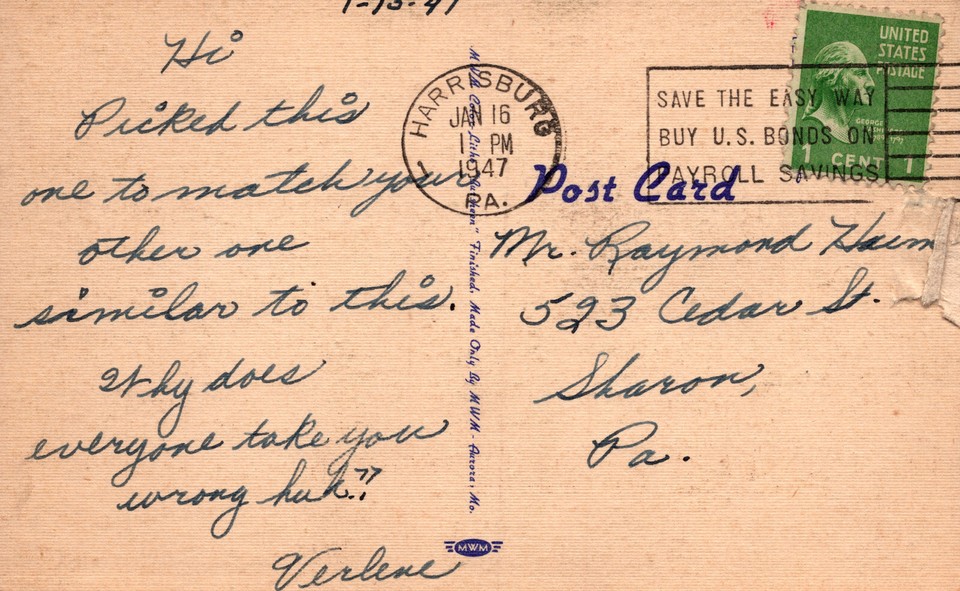 1-15-47
Hi
Picked this
one to match your
other one
similar to this.
Why does
everyone take you
wrong huh??
Verlene
MWM Color-Litho "Autocrom" Finished. Made Only By MWM - Aurora, Mo.
MWM
HARRISBURG
JAN 16
1 PM
1947
PA.
SAVE THE EASY WAY
BUY U.S. BONDS ON
PAYROLL SAVINGS
UNITED
STATES
POSTAGE
GEORGE
1 CENT 1
Post Card
Mr. Raymond Haim
523 Cedar St.
Sharon,
Pa.